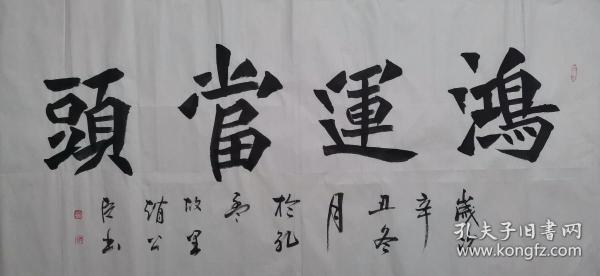 鴻運當頭
歲次
辛
丑冬
月
於孔
孟
故里
公
書
孔夫子旧书网
www.kongfz.com